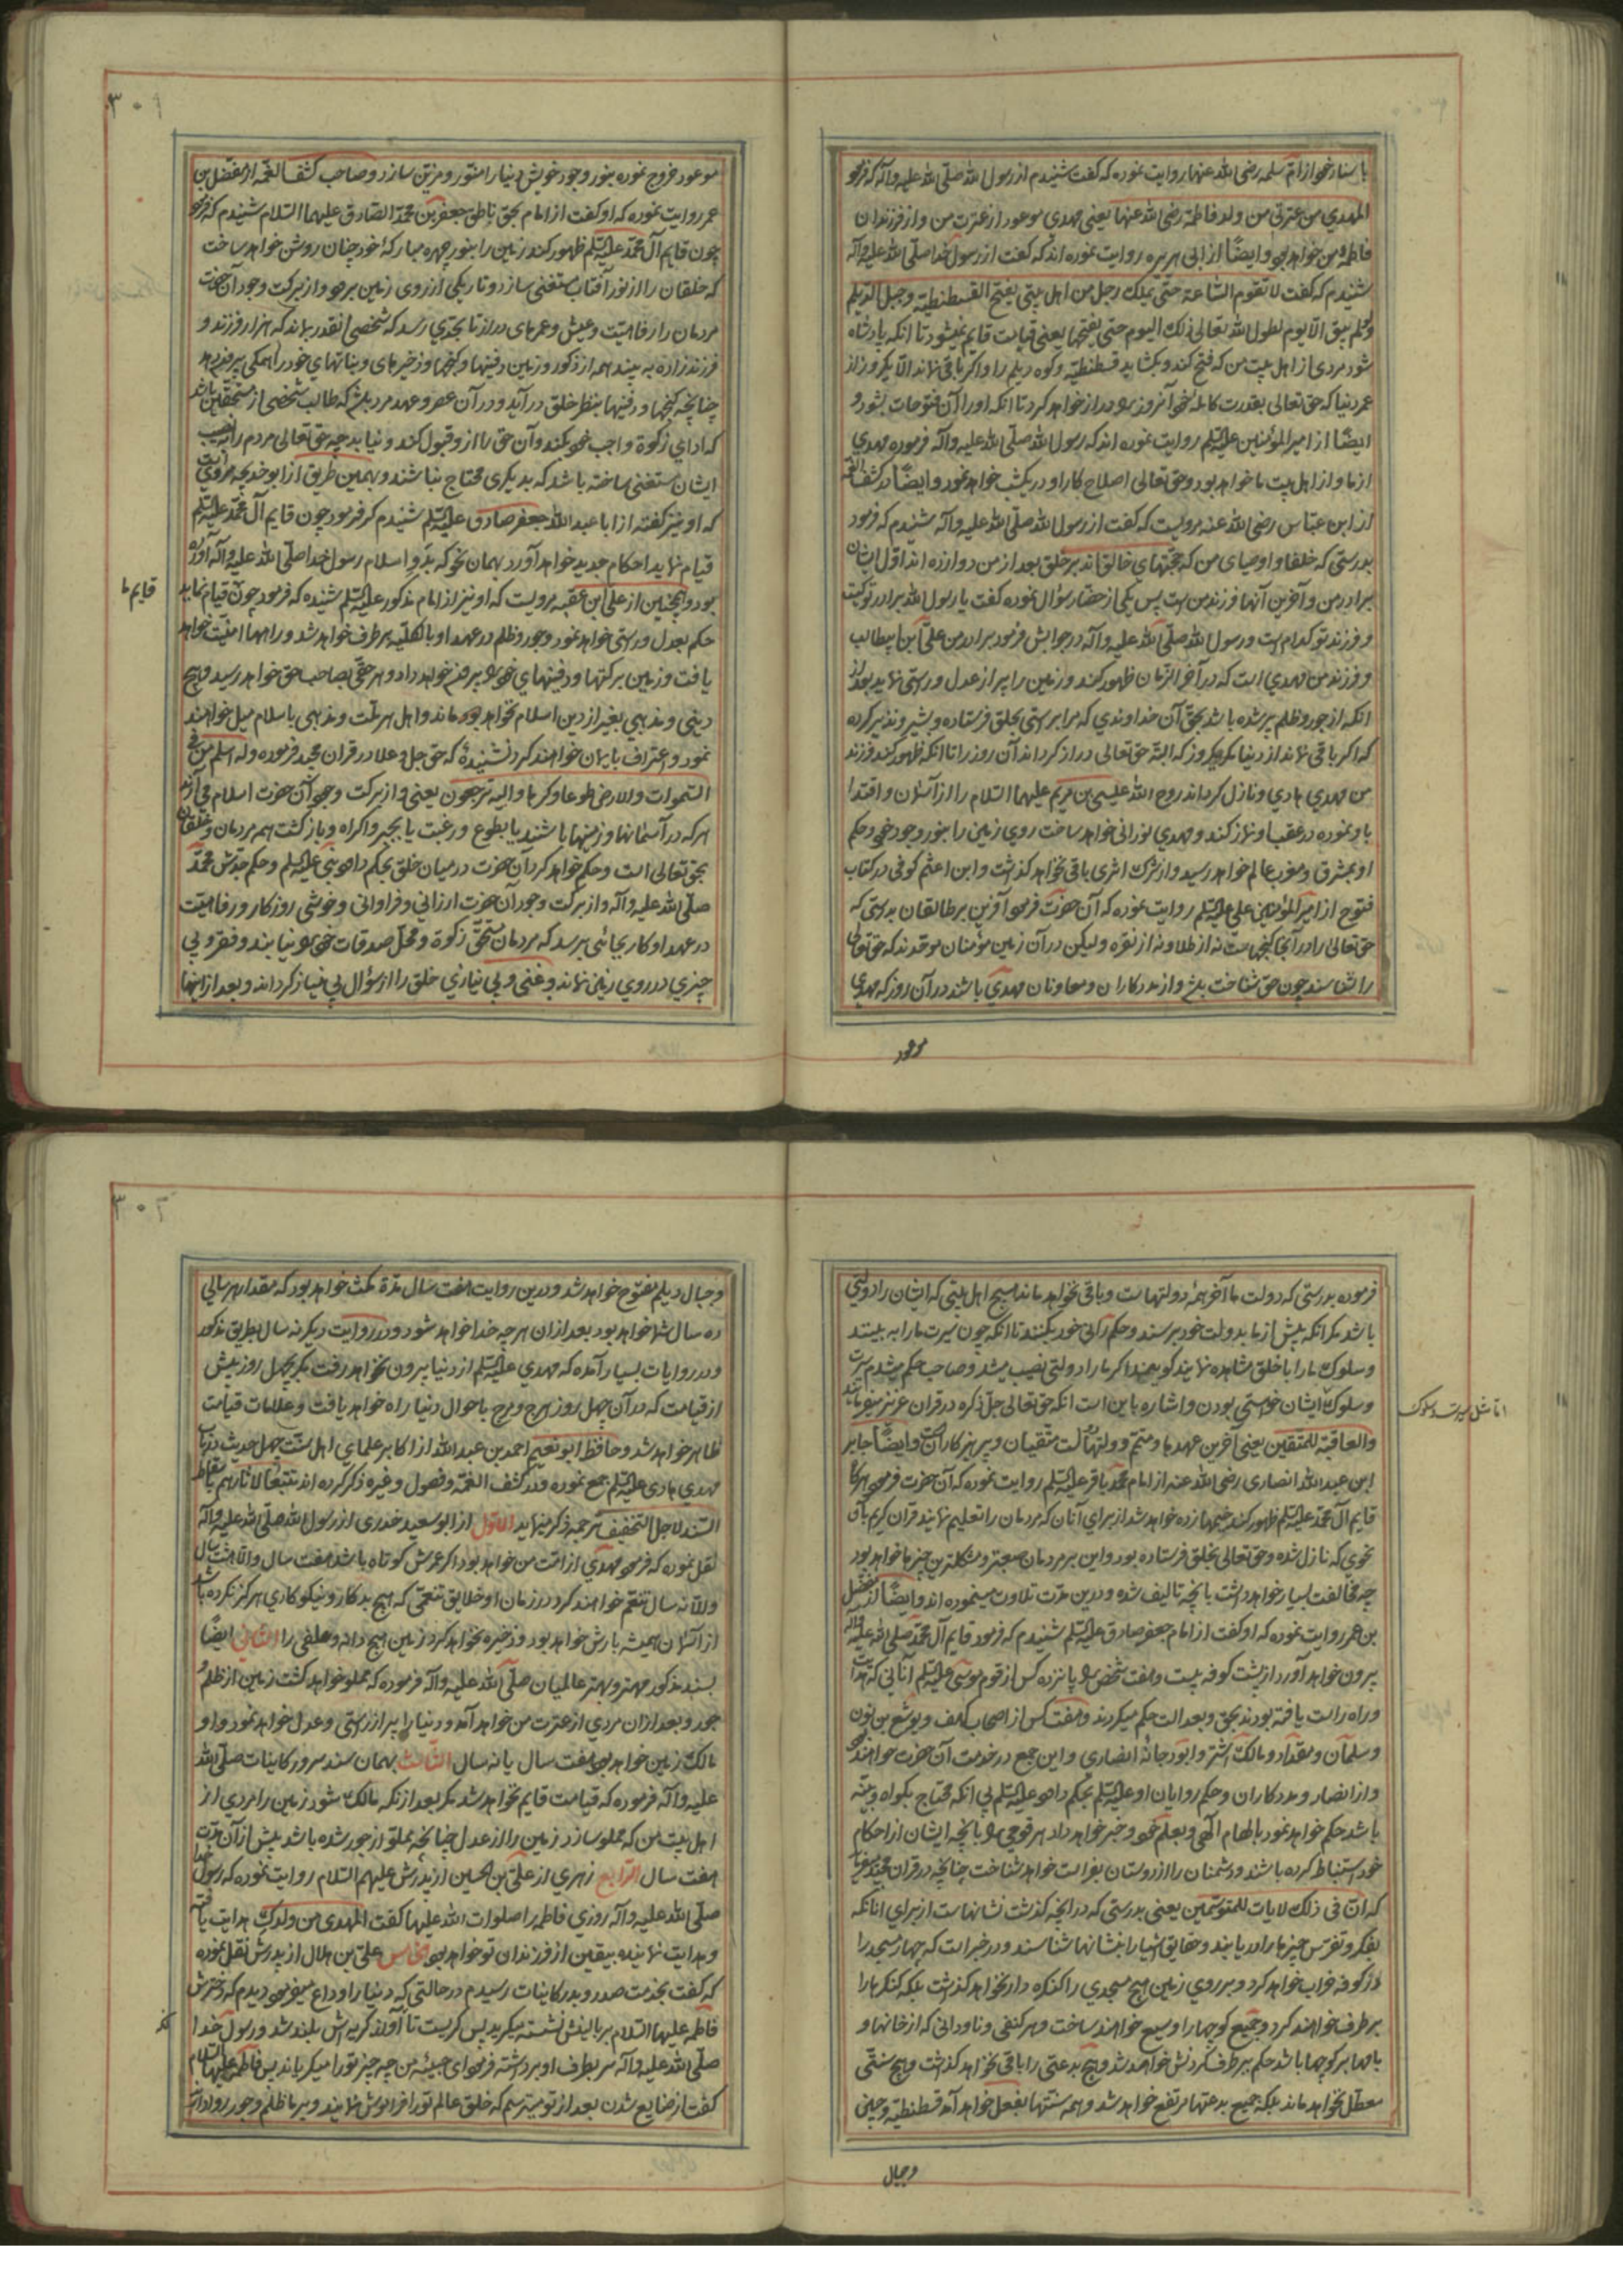 با سناد خود از ام سلمه رضی الله عنها روایت نموده که گفت شنیدم از رسول الله صلی الله علیه وآله که فرمود
المهدي من عترتی من ولد فاطمة رضی الله عنها یعنی مهدي موعود از عترت من و از فرزندان
فاطمه من خواهد بود وایضًا از ابی هریره روایت نموده اند که گفت از رسول خدا صلی الله علیه وآله
شنیدم که گفت لا تقوم الساعة حتی یملك رجل من اهل بیتی یفتح القسطنطیة وجبل الدیلم
ولو لم یبق الا یوم لطول الله تعالی ذلك الیوم حتی یفتحها یعنی قیامت قایم نمیشود تا انکه پادشاه
شود مردی از اهل بیت من که فتح کند و بکشاید قسطنطیه وکوه دیلم را واکر باقی نماند الا یکروز از
عمر دنیا که حق تعالی بقدرت کامله خود آنروز را دراز خواهد کرد تا انکه او را آن فتوحات بشود و
ایضًا از امیر المؤمنین علیه السلم روایت نموده اند که رسول الله صلی الله علیه وآله فرموده مهدي
از ما و از اهل بیت ما خواهد بود وحق تعالی اصلاح کار او در یکشب خواهد نمود وایضًا در کشف الغمه
از ابن عباس رضی الله عنه مرویست که گفت از رسول الله صلی الله علیه وآله شنیدم که فرمود
بدرستی که خلفا و اوصیای من که حجتهاي خالق اند بر خلق بعد از من دوازده اند اول ایشان
برادر من و آخرین آنها فرزند من است پس یکی از حضار سؤال نموده گفت یا رسول الله برادر تو کیست
و فرزند تو کدام است ورسول الله صلی الله علیه وآله در جوابش فرمود برادر من علی ابن ابیطالب
و فرزند من مهدي است که در آخر الزمان ظهور کند وزمین را پر از عدل ورستی نماید بعد از
انکه از جور وظلم پر شده باشد بحق آن خداوندي که مرا برستی بخلق فرستاده وبشیر ونذیر کرده
که اکر باقی نماند از دنیا مکر یکروز که البته حق تعالی دراز کرداند آن روز را تا انکه ظهور کند فرزند
من مهدي هادي ونازل کرداند روح الله عیسی بن مریم علیهما السلام را از آسمان و اقتدا
باو نموده در عقب او نماز کند و مهدي نورانی خواهد ساخت روی زمین را بنور وجود خود وحکم
او بمشرق ومغرب عالم خواهد رسید واز شرك اثری باقی نخواهد کذاشت وابن اعثم کوفی در کتاب
فتوح از امیر المؤمنین علی علیه السلم روایت نموده که آن حضرت فرمود آفرین بر طالقان بدرستی که
حق تعالی را در آنجا کنجهاست نه از طلا ونه از نقره ولیکن در آن زمین مؤمنان موحدند که حق تعالی
را شناسند چون حق شناخت بلش واز مددکاران ومعاونان مهدي باشند در آن روز که مهدي
موعود
۳۰۱
موعود خروج نموده بنور وجود خویش دنیا را منور ومزین سازد وصاحب کشف الغمه از مفضل بن
عمر روایت نموده که او گفت از امام بحق ناطق جعفر بن محمد الصادق علیهما السلام شنیدم که فرمود
چون قایم آل محمد علیه السلم ظهور کند زمین را بنور چهره مبارکهٔ خود چنان روشن خواهد ساخت
که خلقان را از نور آفتاب مستغنی سازد وتاریکی از روی زمین برود واز برکت وجود آن حضرت
مردمان را رفاهیت وعیش وعمرهای دراز تا بحدي رسد که شخصی انقدر بماند که هزار فرزند و
فرزند زاده به بیند همه از ذکور وزمین دفینها وکنجها وذخیرهای وبناتهاي خود را همکی بیرون دهد
چنانچه کنجها ودفینها بنظر خلق درآید ودر آن عصر وعهد مرد بلش که طالب شخصی از مستحقین باشد
که اداي زکوة واجب خود بکند وآن حق را ازو قبول کند ونیابد چه حق تعالی مردم را
ایشان مستغنی ساخته باشد که بدیکری محتاج نباشند وبهمین طریق از ابو خدیجه مرویست
که او نیز گفته از ابا عبد الله جعفر صادق علیه السلم شنیدم که فرمود چون قایم آل محمد علیه السلم
قیام نماید احکام جدید خواهد آورد بهمان نحو که بدو اسلام رسول خدا صلی الله علیه وآله آورده
بود وهمچنین از علی ابن عقبه مرویست که او نیز از امام مذکور علیه السلم شنیده که فرمود چون قیام نماید
قایم ما
حکم بعدل ورستی خواهد نمود وجور وظلم در عهد او بالکلیه برطرف خواهد شد وراهها امنیت خواهد
یافت وزمین برکتها ودفینهاي خود را بیرون خواهد داد وهر حقی بصاحب حق خواهد رسید وهیچ
دینی ومذهبي بغیر از دین اسلام نخواهد ماند واهل هر ملت ومذهبی باسلام میل خواهند
نمود واعتراف بایمان خواهند کرد نشنیدهٔ که حق جل وعلا در قران مجید فرموده وله اسلم من فی
السموات والارض طوعا وکرها والیه ترجعون یعنی واز برکت وجود آن حضرت اسلام می آرند
هر که در آسمانها وزمینها باشند یا بطوع ورغبت یا بجبر واکراه وبازکشت همه مردمان وخلقان
بحق تعالی است وحکم خواهد کرد آن حضرت در میان خلق بحکم داود نبی علیه السلم وحکم جدش محمد
صلی الله علیه وآله واز برکت وجود آن حضرت ارزانی وفراوانی وخوشی روزکار ورفاهیت
در عهد او کار بجائی برسد که مردمان مستحق زکوة ومحل صدقات خود را نیابند وفقر وبی
چیزي در روي زمین نماند وغنی وبی نیازي خلق را از سؤال بی نیاز کرداند وبعد از اینها
فرموده بدرستی که دولت ما آخر همهٔ دولتهاست وباقی نخواهد ماند هیچ اهل بیتی که ایشان را دولتی
باشد مکر انکه پیش از ما بدولت خود برسند وحکمرانی خود بکنند تا انکه چون سیرت ما را به بینند
وسلوك ما را با خلق مشاهده نمایند کویند اکر ما را دولتی نصیب میشد وصاحب حکم میشدیم سیرت
وسلوك ایشان خواستی بودن واشاره باین است انکه حق تعالی جل ذکره در قران عزیز میفرماید
اما مثل سیرت وسلوك
والعاقبة للمتقین یعنی آخرین عهدها ومتمم دولتها دولت متقیان وپرهیزکاران است وایضًا جابر
ابن عبد الله انصاری رضی الله عنه از امام محمد باقر علیه السلم روایت نموده که آن حضرت فرمود هر کاه
قایم آل محمد علیه السلم ظهور کند خیمها زده خواهد شد از براي آنان که مردمان را تعلیم نمایند قران کریم بآن
نحوي که نازل شده وحق تعالی بخلق فرستاده بود واین بر مردمان صعبتر ومشکلترین چیزها خواهد بود
چه مخالفت بسیار خواهد داشت با نچه تالیف شده ودرین مدت تلاوت مینموده اند وایضًا از مفضل
بن عمر روایت نموده که او گفت از امام جعفر صادق علیه السلم شنیدم که فرمود قایم آل محمد صلی الله علیه وآله
بیرون خواهد آورد از پشت کوفه بیست وهفت شخص را پانزده کس از قوم موسی علیه السلم آنانی که هدایت
وراه راست یافته بودند بحق وبعدالت حکم میکردند وهفت کس از اصحاب کهف ویوشع بن نون
وسلمان ومقداد ومالك اشتر وابو دجانهٔ انصاري واین جمع در خدمت آن حضرت خواهند بود
واز انصار ومددکاران وحکم روایان او علیه السلم بحکم داود علیه السلم بی انکه محتاج بکواه وبینه
باشد حکم خواهد نمود بالهام آلهی وبعلم خود وخبر خواهد داد هر قومی را بانچه ایشان از احکام
خود استنباط کرده باشند ودشمنان را از دوستان بفراست خواهد شناخت چنانچه در قران مجید میفرماید
که ان فی ذلك لایات للمتوسمین یعنی بدرستی که در انچه کذشت نشانهاست از براي انانکه
بفکر وتفرس چیزها را دریابند وحقایق اشیا را بنشانها شناسند ودر خبر است که چهار مسجد را
در کوفه خراب خواهد کرد وبر روي زمین هیچ مسجدي را کنکره دار نخواهد کذاشت بلکه کنکرها را
برطرف خواهند کرد وجمیع کوچها را وسیع خواهند ساخت وهر کنفی وناودانی که از خانها و
بامها بر کوچها باشد حکم ببرطرف کردنش خواهد شد وهیچ بدعتی را باقی نخواهد کذاشت وهیچ سنتی
معطل نخواهد ماند بلکه جمیع بدعتها مرتفع خواهد شد وهمه سنتها بفعل خواهد آمد قسطنطیه وچین
وجبال
۳۰۲
وجبال دیلم مفتوح خواهد شد ودرین روایت هفت سال مدة مکث خواهد بود که مقدار هر سالی
ده سال شما خواهد بود بعد از ان هر چه خدا خواهد شود ودر روایت دیکر نه سال بطریق مذکور
ودر روایات بسیار آمده که مهدي علیه السلم از دنیا بیرون نخواهد رفت مکر بچهل روز پیش
از قیامت که در آن چهل روز هرج ومرج باحوال دنیا راه خواهد یافت وعلامات قیامت
ظاهر خواهد شد وحافظ ابو نعیم احمد بن عبد الله از اکابر علماي اهل سنت چهل حدیث در باب
مهدي هادی علیه السلم جمع نموده ودر کشف الغمه وفصول وغیره ذکر کرده اند تتبعًا لاثارهم باسقاط
السند لاجل التخفیف ترجمه ذکر مینماید الاول از ابو سعید خدری از رسول الله صلی الله علیه وآله
نقل نموده که فرمود مهدي از امت من خواهد بود اکر عمرش کوتاه باشد هفت سال والا هشت سال
والا نه سال تنعم خواهند کرد در زمان او خلایق تنعمی که هیچ بدکار ونیکوکاري هرکز نکرده باشد
از آسمان همیشه بارش خواهد بود وذخیره نخواهد کرد زمین هیچ دانه وعلفی را الثانی ایضًا
بسند مذکور مهتر وبهتر عالمیان صلی الله علیه وآله فرموده که مملو خواهد کشت زمین از ظلم و
جور وبعد از ان مردي از عترت من خواهد آمد ودنیا را پر از رستی وعدل خواهد نمود واو
مالك زمین خواهد بود هفت سال یا نه سال الثالث بهمان سند سرور کاینات صلی الله
علیه وآله فرموده که قیامت قایم نخواهد شد مکر بعد از نکه مالك شود زمین را مردی از
اهل بیت من که مملو سازد زمین را از عدل چنانچه مملو از جور شده باشد پیش از آن مدت
هفت سال الرابع زهري از علی بن الحسین از پدرش علیهم السلام روایت نموده که رسول خدا
صلی الله علیه وآله روزي فاطمه را صلوات الله علیها گفت المهدی من ولدك هدایت یافته
وهدایت نماینده بیقین از فرزندان تو خواهد بود الخامس علی بن هلال از پدرش نقل نموده
که گفت بخدمت صدر وبدر کاینات رسیدم در حالتی که دنیا را وداع میفرمود دیدم که دخترش
فاطمه علیها السلام بر بالینش نشسته میکرید پس کریست تا آواز کریه اش بلند شد ورسول خدا
صلی الله علیه وآله سر بطرف او برداشته فرمود اي حبیبهٔ من چه چیز تورا میکریاند پس فاطمه علیها السلام
گفت از ضایع شدن بعد از تو میترسم که خلق عالم تورا فراموش نمایند وبر ما ظلم وجور روا دارند